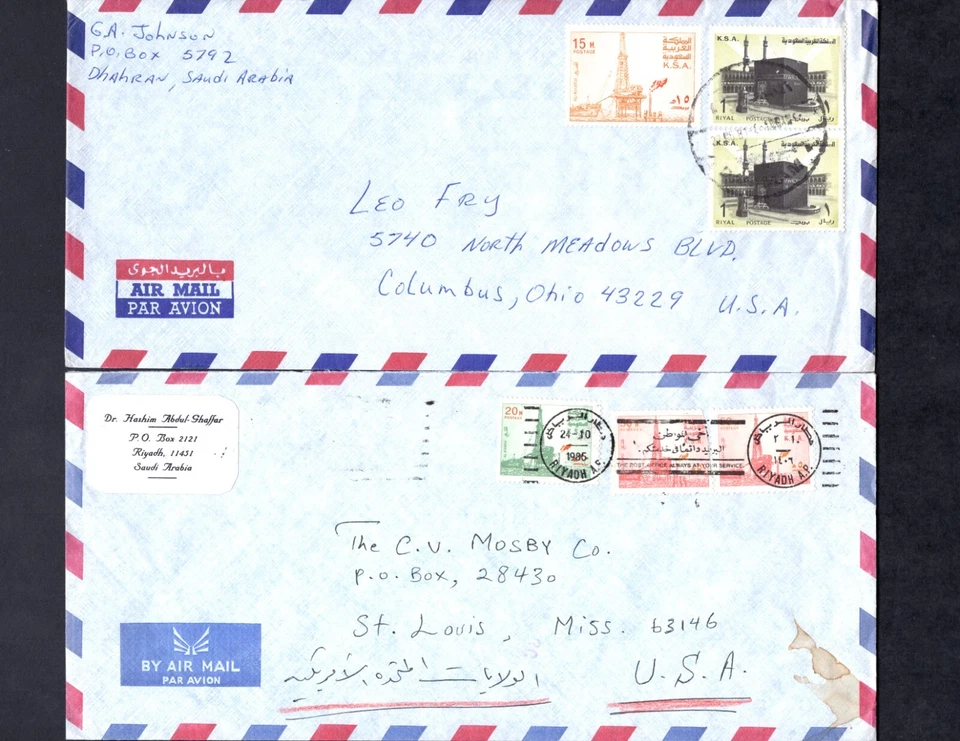 G.A. Johnson
P.O. Box 5792
Dhahran, Saudi Arabia
15 H.
POSTAGE
المملكة
العربية
السعودية
K.S.A.
١٥
K.S.A.
المملكة العربية السعودية
1
١
RIYAL POSTAGE بريد ريال
K.S.A.
المملكة العربية السعودية
1
١
RIYAL POSTAGE بريد ريال
Leo Fry
5740 North Meadows Blvd.
Columbus, Ohio 43229 U.S.A.
بالبريد الجوى
AIR MAIL
PAR AVION
Dr. Hashim Abdul-Ghaffar
P.O. Box 2121
Riyadh, 11451
Saudi Arabia
20 H
POSTAGE
مطار الرياض
24-10
1986
RIYADH A.P.
البريد دائما في خدمتكم
THE POST OFFICE ALWAYS AT YOUR SERVICE
مطار الرياض
١٤٠٦
RIYADH A.P.
The C.V. Mosby Co.
P.O. Box, 28430
St. Louis, Miss. 63146
الولايات المتحدة الأمريكية
U.S.A.
BY AIR MAIL
PAR AVION